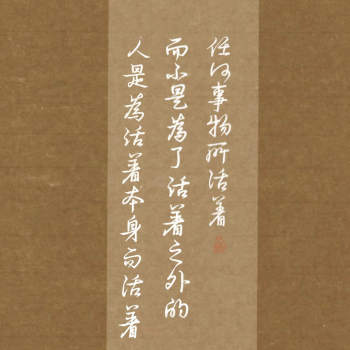 人是為活着本身而活着
而不是為了活着之外的
任何事物所活着